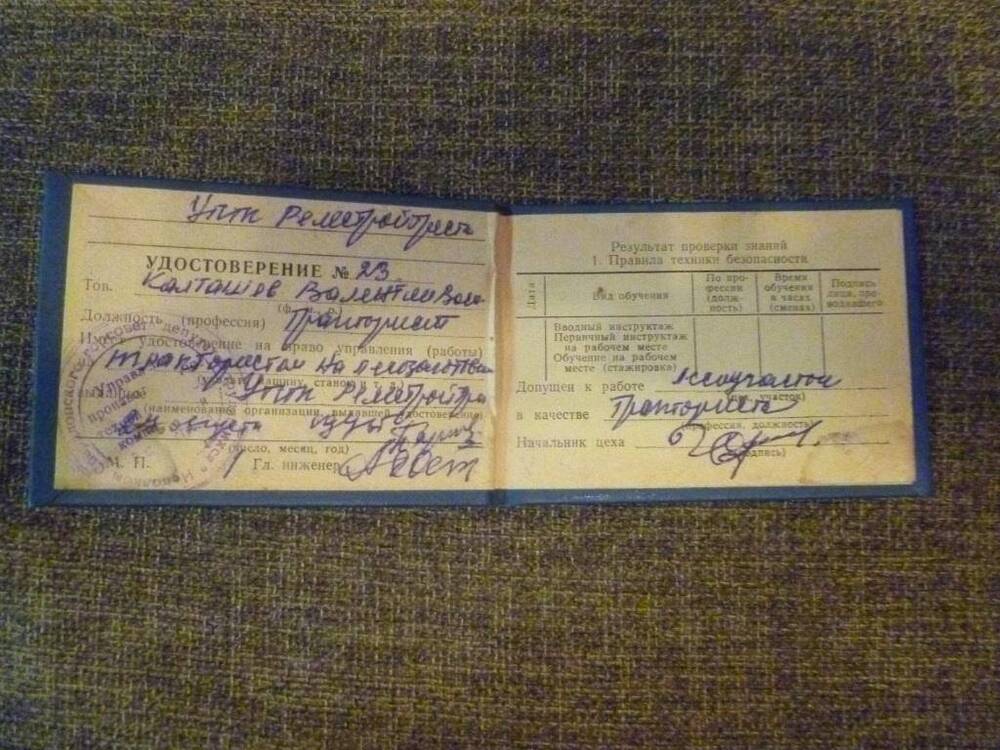 Уптк Ремстройтреста
УДОСТОВЕРЕНИЕ № 23
Тов. Калташов Валентин
(ф., и., о.)
Должность (профессия) Тракторист
Имеет удостоверение на право управления (работы)
трактористом на лесозаготовки
(указать машину, станок и т. д.)
выданное Уптк Ремстройтр
(наименование организации, выдавшей удостоверение)
августа
(число, месяц, год)
М. П. Гл. инженер
Результат проверки знаний
1. Правила техники безопасности
Дата
Вид обучения
По про-
фессии
(долж-
ность)
Время
обучения
в часах
(сменах)
Подпись
лица, про-
водившего
Вводный инструктаж
Первичный инструктаж
на рабочем месте
Обучение на рабочем
месте (стажировка)
Допущен к работе лесоучасток
в качестве Тракториста
(профессия, должность)
Начальник цеха
(подпись)